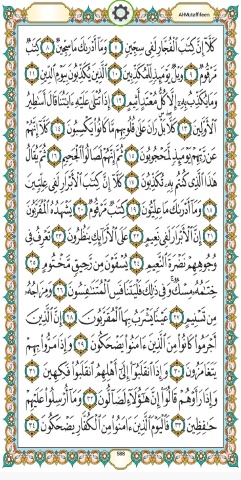 Al-Mutaffifeen
كَلَّا إِنَّ كِتَٰبَ ٱلْفُجَّارِ لَفِى سِجِّينٍ ٧ وَمَآ أَدْرَىٰكَ مَا سِجِّينٌ ٨ كِتَٰبٌ
مَّرْقُومٌ ٩ وَيْلٌ يَوْمَئِذٍ لِّلْمُكَذِّبِينَ ١٠ ٱلَّذِينَ يُكَذِّبُونَ بِيَوْمِ ٱلدِّينِ ١١
وَمَا يُكَذِّبُ بِهِۦٓ إِلَّا كُلُّ مُعْتَدٍ أَثِيمٍ ١٢ إِذَا تُتْلَىٰ عَلَيْهِ ءَايَٰتُنَا قَالَ أَسَٰطِيرُ
ٱلْأَوَّلِينَ ١٣ كَلَّا بَلْ رَانَ عَلَىٰ قُلُوبِهِم مَّا كَانُوا۟ يَكْسِبُونَ ١٤ كَلَّآ إِنَّهُمْ
عَن رَّبِّهِمْ يَوْمَئِذٍ لَّمَحْجُوبُونَ ١٥ ثُمَّ إِنَّهُمْ لَصَالُوا۟ ٱلْجَحِيمِ ١٦ ثُمَّ يُقَالُ
هَٰذَا ٱلَّذِى كُنتُم بِهِۦ تُكَذِّبُونَ ١٧ كَلَّآ إِنَّ كِتَٰبَ ٱلْأَبْرَارِ لَفِى عِلِّيِّينَ
١٨ وَمَآ أَدْرَىٰكَ مَا عِلِّيُّونَ ١٩ كِتَٰبٌ مَّرْقُومٌ ٢٠ يَشْهَدُهُ ٱلْمُقَرَّبُونَ
٢١ إِنَّ ٱلْأَبْرَارَ لَفِى نَعِيمٍ ٢٢ عَلَى ٱلْأَرَآئِكِ يَنظُرُونَ ٢٣ تَعْرِفُ فِى
وُجُوهِهِمْ نَضْرَةَ ٱلنَّعِيمِ ٢٤ يُسْقَوْنَ مِن رَّحِيقٍ مَّخْتُومٍ ٢٥
خِتَٰمُهُۥ مِسْكٌ وَفِى ذَٰلِكَ فَلْيَتَنَافَسِ ٱلْمُتَنَٰفِسُونَ ٢٦ وَمِزَاجُهُۥ
مِن تَسْنِيمٍ ٢٧ عَيْنًا يَشْرَبُ بِهَا ٱلْمُقَرَّبُونَ ٢٨ إِنَّ ٱلَّذِينَ
أَجْرَمُوا۟ كَانُوا۟ مِنَ ٱلَّذِينَ ءَامَنُوا۟ يَضْحَكُونَ ٢٩ وَإِذَا مَرُّوا۟ بِهِمْ
يَتَغَامَزُونَ ٣٠ وَإِذَا ٱنقَلَبُوٓا۟ إِلَىٰٓ أَهْلِهِمُ ٱنقَلَبُوا۟ فَكِهِينَ ٣١
وَإِذَا رَأَوْهُمْ قَالُوٓا۟ إِنَّ هَٰٓؤُلَآءِ لَضَآلُّونَ ٣٢ وَمَآ أُرْسِلُوا۟ عَلَيْهِمْ
حَٰفِظِينَ ٣٣ فَٱلْيَوْمَ ٱلَّذِينَ ءَامَنُوا۟ مِنَ ٱلْكُفَّارِ يَضْحَكُونَ ٣٤
588